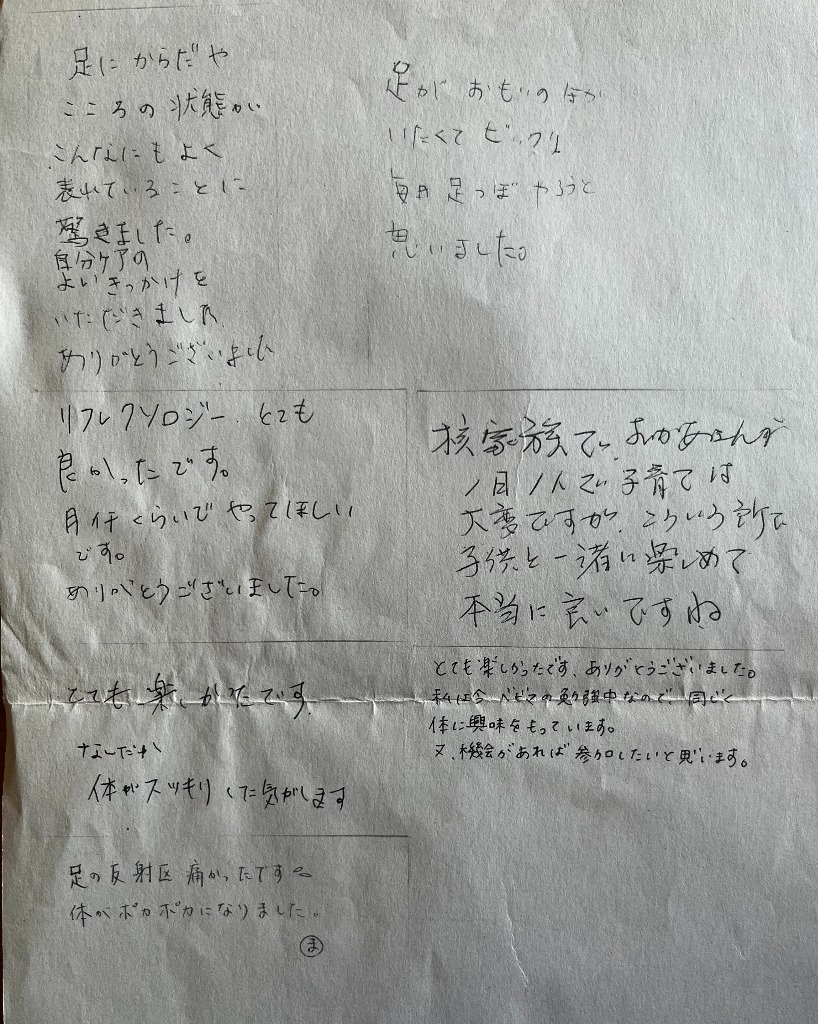 足にからだや
こころの状態が
こんなにもよく
表れていることに
驚きました。
自分ケアの
よいきっかけを
いただきました
ありがとうございました
足がおもいのほか
いたくてビックリ
毎日足つぼやろうと
思いました。
リフレクソロジー、とても
良かったです。
月イチくらいでやってほしい
です。
ありがとうございました。
核家族で、おかあさんが
1日1人で子育ては
大変ですが、こういう所で
子供と一緒に楽しめて
本当に良いですね
とても楽しかったです。
なんだか
体がスッキリした気がします
とても楽しかったです、ありがとうございました。
私は今ベビマの勉強中なので、同じく
体に興味をもっています。
又、機会があれば参加したいと思います。
足の反射区痛かったです
体がポカポカになりました。
ま